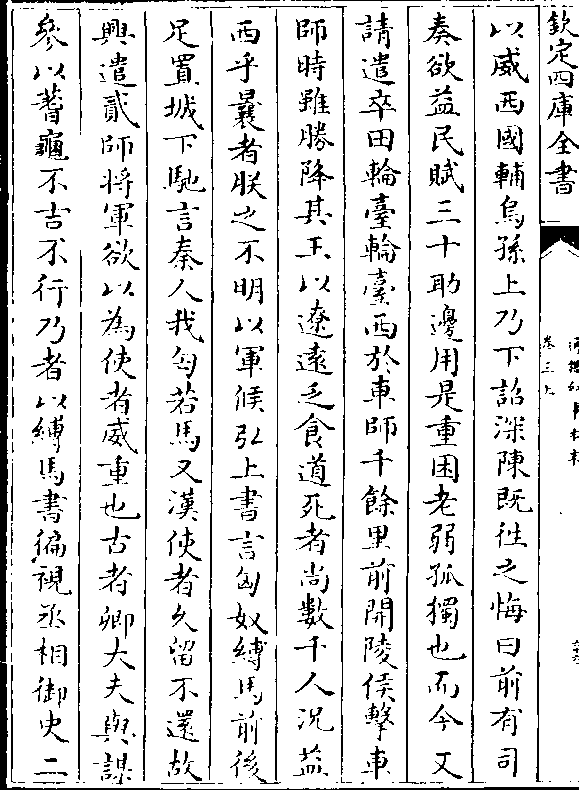 欽定四庫全書
卷三上
以威西國輔烏孫上乃下詔深陳既往之悔曰前有司
奏欲益民賦三十助邊用是重困老弱孤獨也而今又
請遣卒田輪臺輪臺西於車師千餘里前開陵侯擊車
師時雖勝降其王以遼遠乏食道死者尚數千人況益
西乎曩者朕之不明以軍候弘上書言匈奴縛馬前後
足置城下馳言秦人我匄若馬又漢使者久留不還故
興遣貳師將軍欲以為使者威重也古者卿大夫與謀
參以蓍龜不吉不行乃者以縛馬書徧視丞相御史二